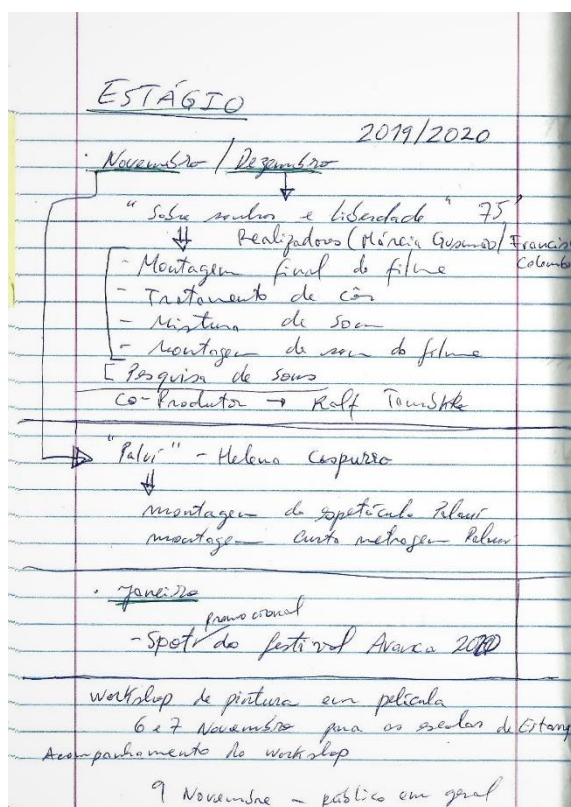 ESTÁGIO
2019/2020
· Novembro / Dezembro
"Sobre sonhos e liberdade" 75'
Realizadores (Márcia Gusmão / Francisco Colombo
- Montagem final do filme
- Tratamento de côr
- Mistura de som
- Montagem de som do filme
[ Pesquisa de sons
Co-Produtor → Rolf
"Paluí" - Helena Caspurro
montagem do espetáculo Paluí
montagem curta metragem Paluí
· Janeiro
promocional
- Spot do festival Avanca 2020
Workshop de pintura em película
6 e 7 Novembro para as escolas de
Acompanhamento do workshop
9 Novembro - público em geral